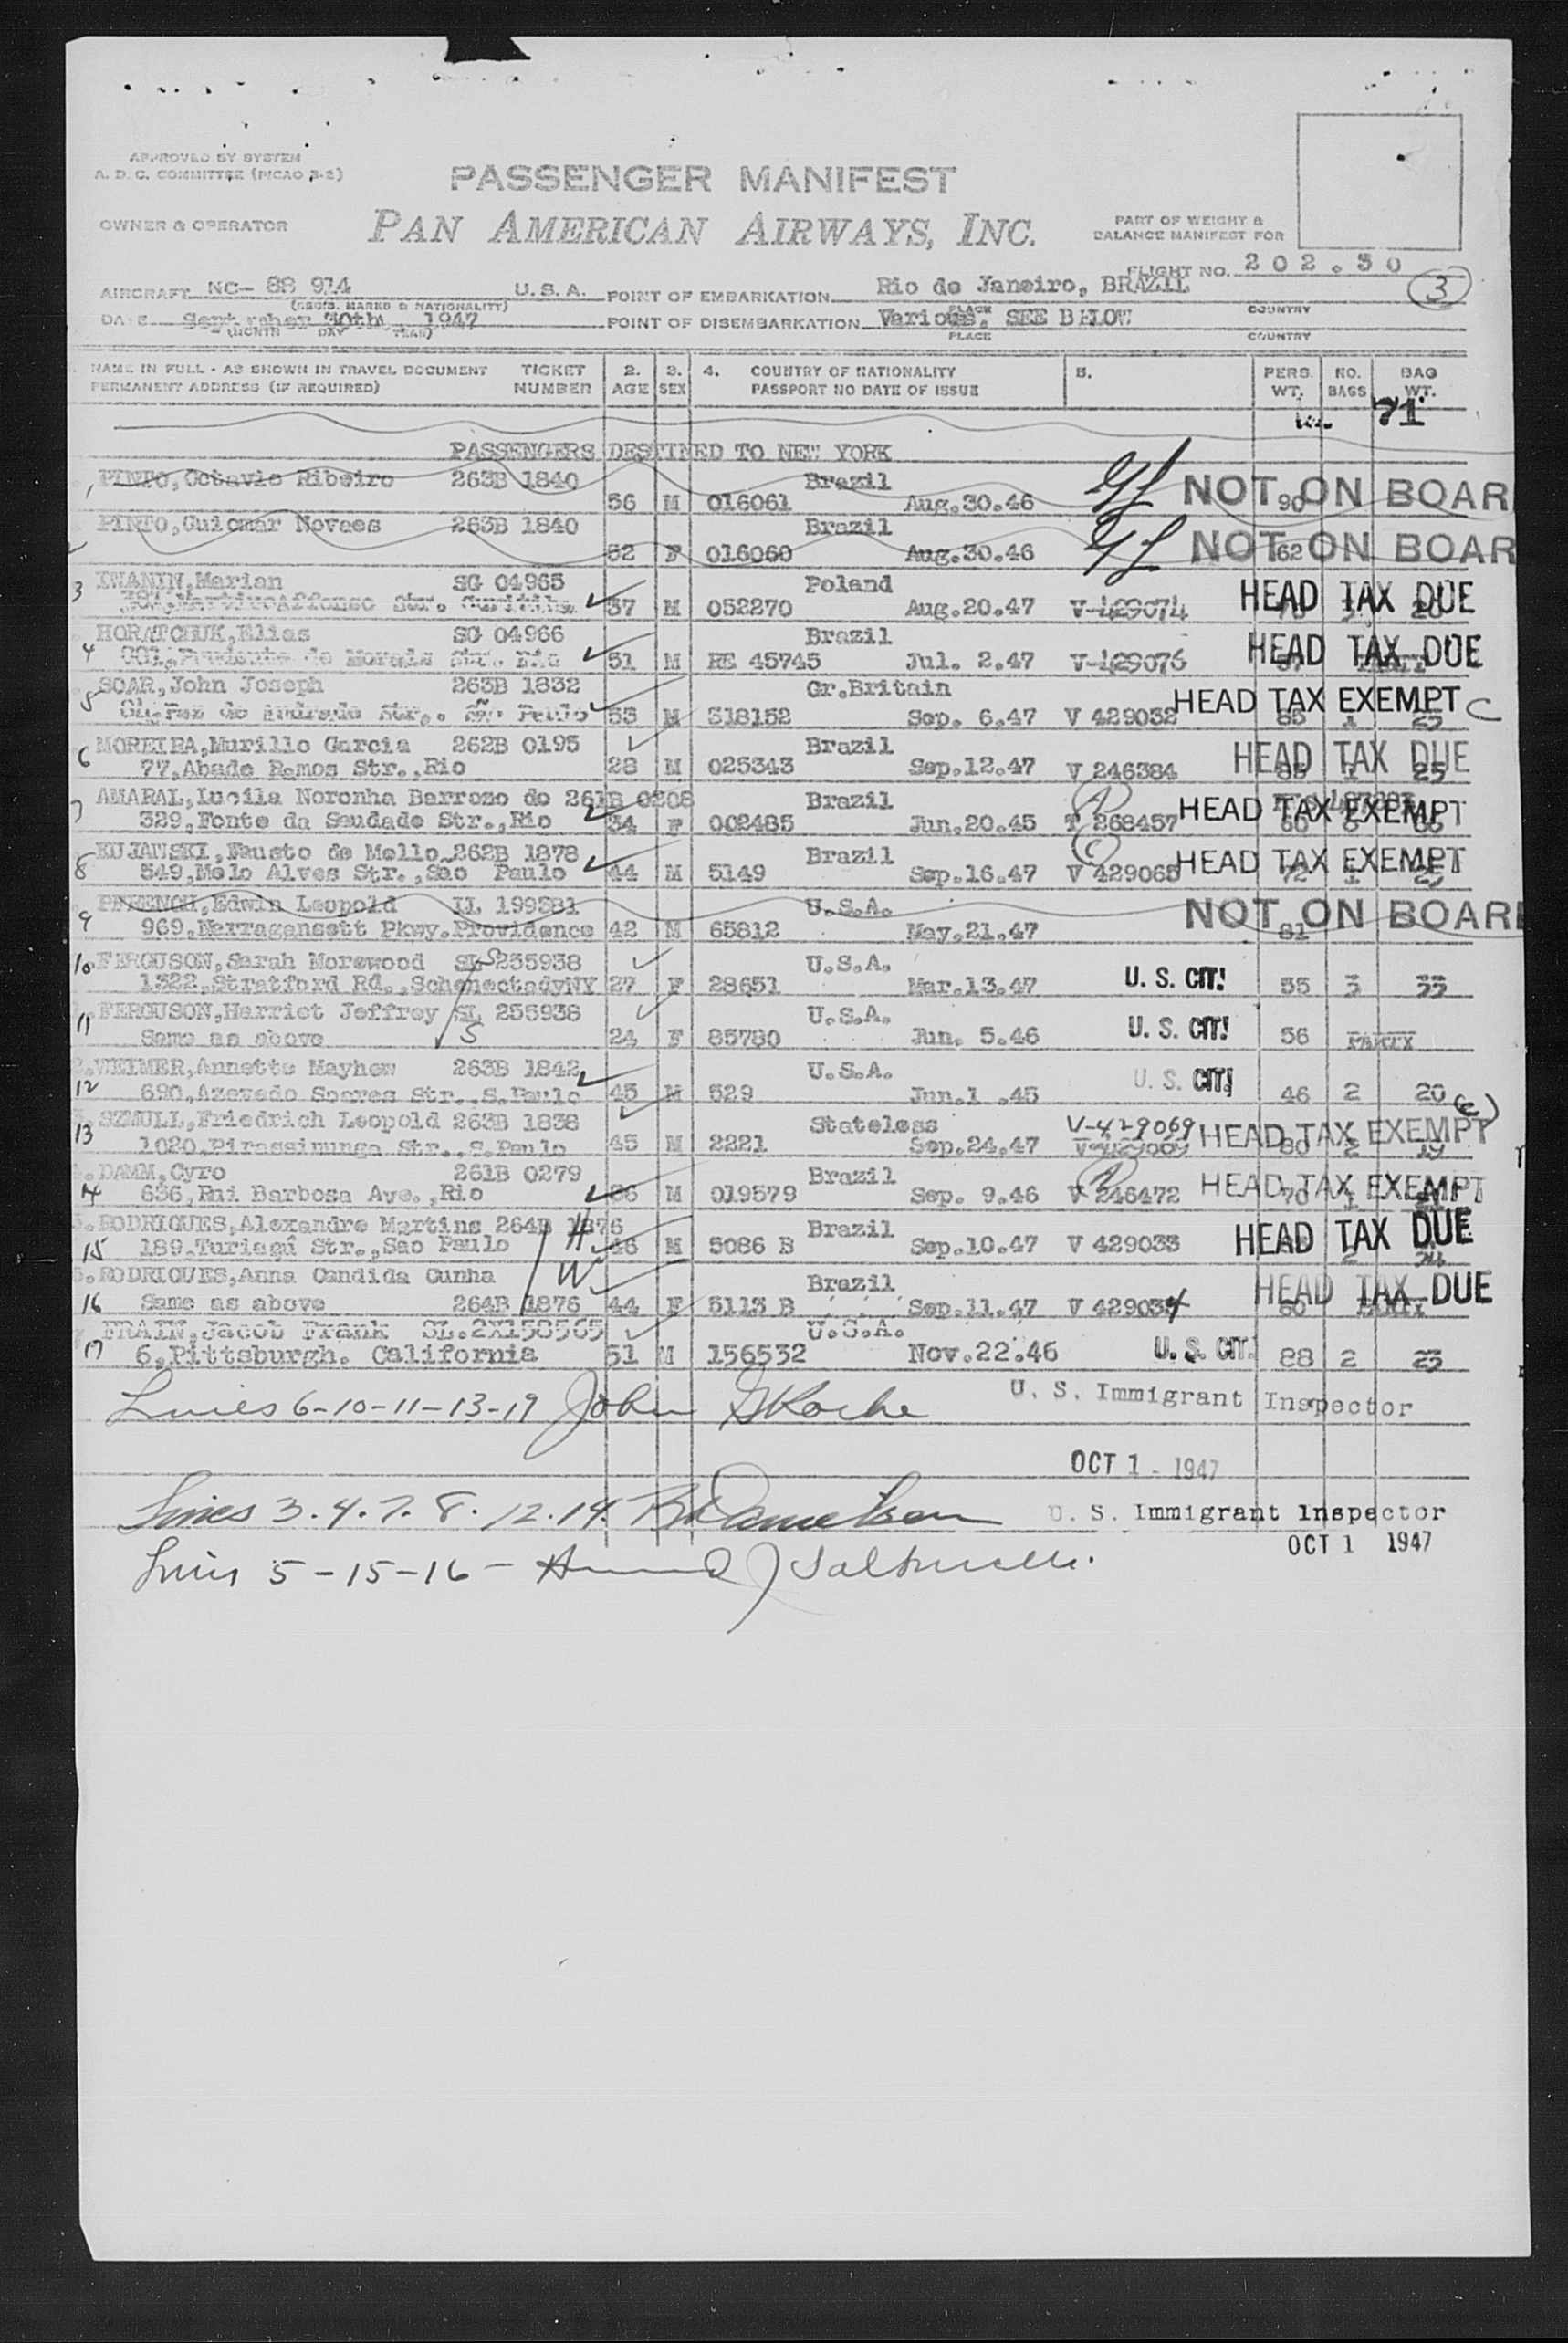 APPROVED BY SYSTEM
A. D. C. COMMITTEE (PICAO 3-2)
PASSENGER MANIFEST
OWNER & OPERATOR
PAN AMERICAN AIRWAYS, INC.
PART OF WEIGHT &
BALANCE MANIFEST FOR
FLIGHT NO. 202.30
3
AIRCRAFT NC- 88 974 U.S.A. POINT OF EMBARKATION Rio de Janeiro, BRAZIL
(REGIS. MARKS & NATIONALITY) PLACE COUNTRY
DATE September 30th 1947 POINT OF DISEMBARKATION Various, SEE BELOW
(MONTH DAY YEAR) PLACE COUNTRY
NAME IN FULL - AS SHOWN IN TRAVEL DOCUMENT TICKET 2. 3. 4. COUNTRY OF NATIONALITY 5. PERS. NO. BAG
PERMANENT ADDRESS (IF REQUIRED) NUMBER AGE SEX PASSPORT NO DATE OF ISSUE WT. BAGS WT.
71
PASSENGERS DESTINED TO NEW YORK
1 PINTO, Octavio Ribeiro 263B 1840 Brazil
56 M 016061 Aug.30.46 NOT ON BOAR 90
PINTO, Guiomar Novaes 263B 1840 Brazil
2 52 F 016060 Aug.30.46 NOT ON BOAR 62
3 IWANIN, Marian SG 04965 Poland
Affonso Str. 37 M 052270 Aug.20.47 V-429074 HEAD TAX DUE
HORATCHUK, Elias SG 04966 Brazil
4 de Moraes Str. Rio 51 M RE 45745 Jul. 2.47 V-429076 HEAD TAX DUE
SOAR, John Joseph 263B 1832 Gr.Britain
5 de Andrade Str.. São Paulo 53 M 318152 Sep. 6.47 V 429032 HEAD TAX EXEMPT C
MOREIRA, Murillo Garcia 262B 0195 Brazil
6 77, Abade Ramos Str., Rio 28 M 025343 Sep.12.47 V 246384 HEAD TAX DUE 25
AMARAL, Lucila Noronha Barroso do 261B 0208 Brazil
7 329, Fonte da Saudade Str., Rio 34 F 002485 Jun.20.45 T 268457 HEAD TAX EXEMPT
KUJAWSKI, Fausto de Mello 262B 1878 Brazil
8 549, Melo Alves Str., Sao Paulo 44 M 5149 Sep.16.47 V 429065 HEAD TAX EXEMPT
Edwin Leopold LL 199381 U.S.A.
9 969, Narragansett Pkwy. Providence 42 M 65812 May.21.47 NOT ON BOAR 81
10 FERGUSON, Sarah Morewood SL 255938 U.S.A.
1322, Stratford Rd., Schenectady NY 27 F 28651 Mar.13.47 U. S. CIT! 55 3 33
FERGUSON, Harriet Jeffrey SL 255938 U.S.A.
11 Same as above 24 F 85780 Jun. 5.46 U. S. CIT! 56 PARTY
WEIMER, Annette Mayhew 263B 1842 U.S.A.
12 690, Azevedo Soares Str., S.Paulo 45 M 529 Jun.1 .45 U. S. CIT! 46 2 20
SZMULL, Friedrich Leopold 263B 1838 Stateless V-429069 (c)
13 1020, Pirassinunga Str., S.Paulo 45 M 2221 Sep.24.47 V-429069 HEAD TAX EXEMPT 80 2 19
DAMM, Cyro 261B 0279 Brazil
14 636, Rui Barbosa Ave., Rio 36 M 019579 Sep. 9.46 V 246472 HEAD TAX EXEMPT 70 1
RODRIGUES, Alexandre Martins 264B 1876 H Brazil
15 189, Turiaçú Str., Sao Paulo 46 M 5086 B Sep.10.47 V 429033 HEAD TAX DUE
RODRIGUES, Anna Candida Cunha W Brazil
16 Same as above 264B 1876 44 F 5113 B Sep.11.47 V 429034 HEAD TAX DUE 60
FRAIN, Jacob Frank SL.2X158565 U.S.A.
17 6, Pittsburgh. California 51 M 156532 Nov.22.46 U. S. CIT. 88 2 23
Lines 6-10-11-13-17 John Roche U. S. Immigrant Inspector
OCT 1 - 1947
Lines 3.4.7.8.12.14. U. S. Immigrant Inspector
OCT 1 1947
Lines 5-15-16-